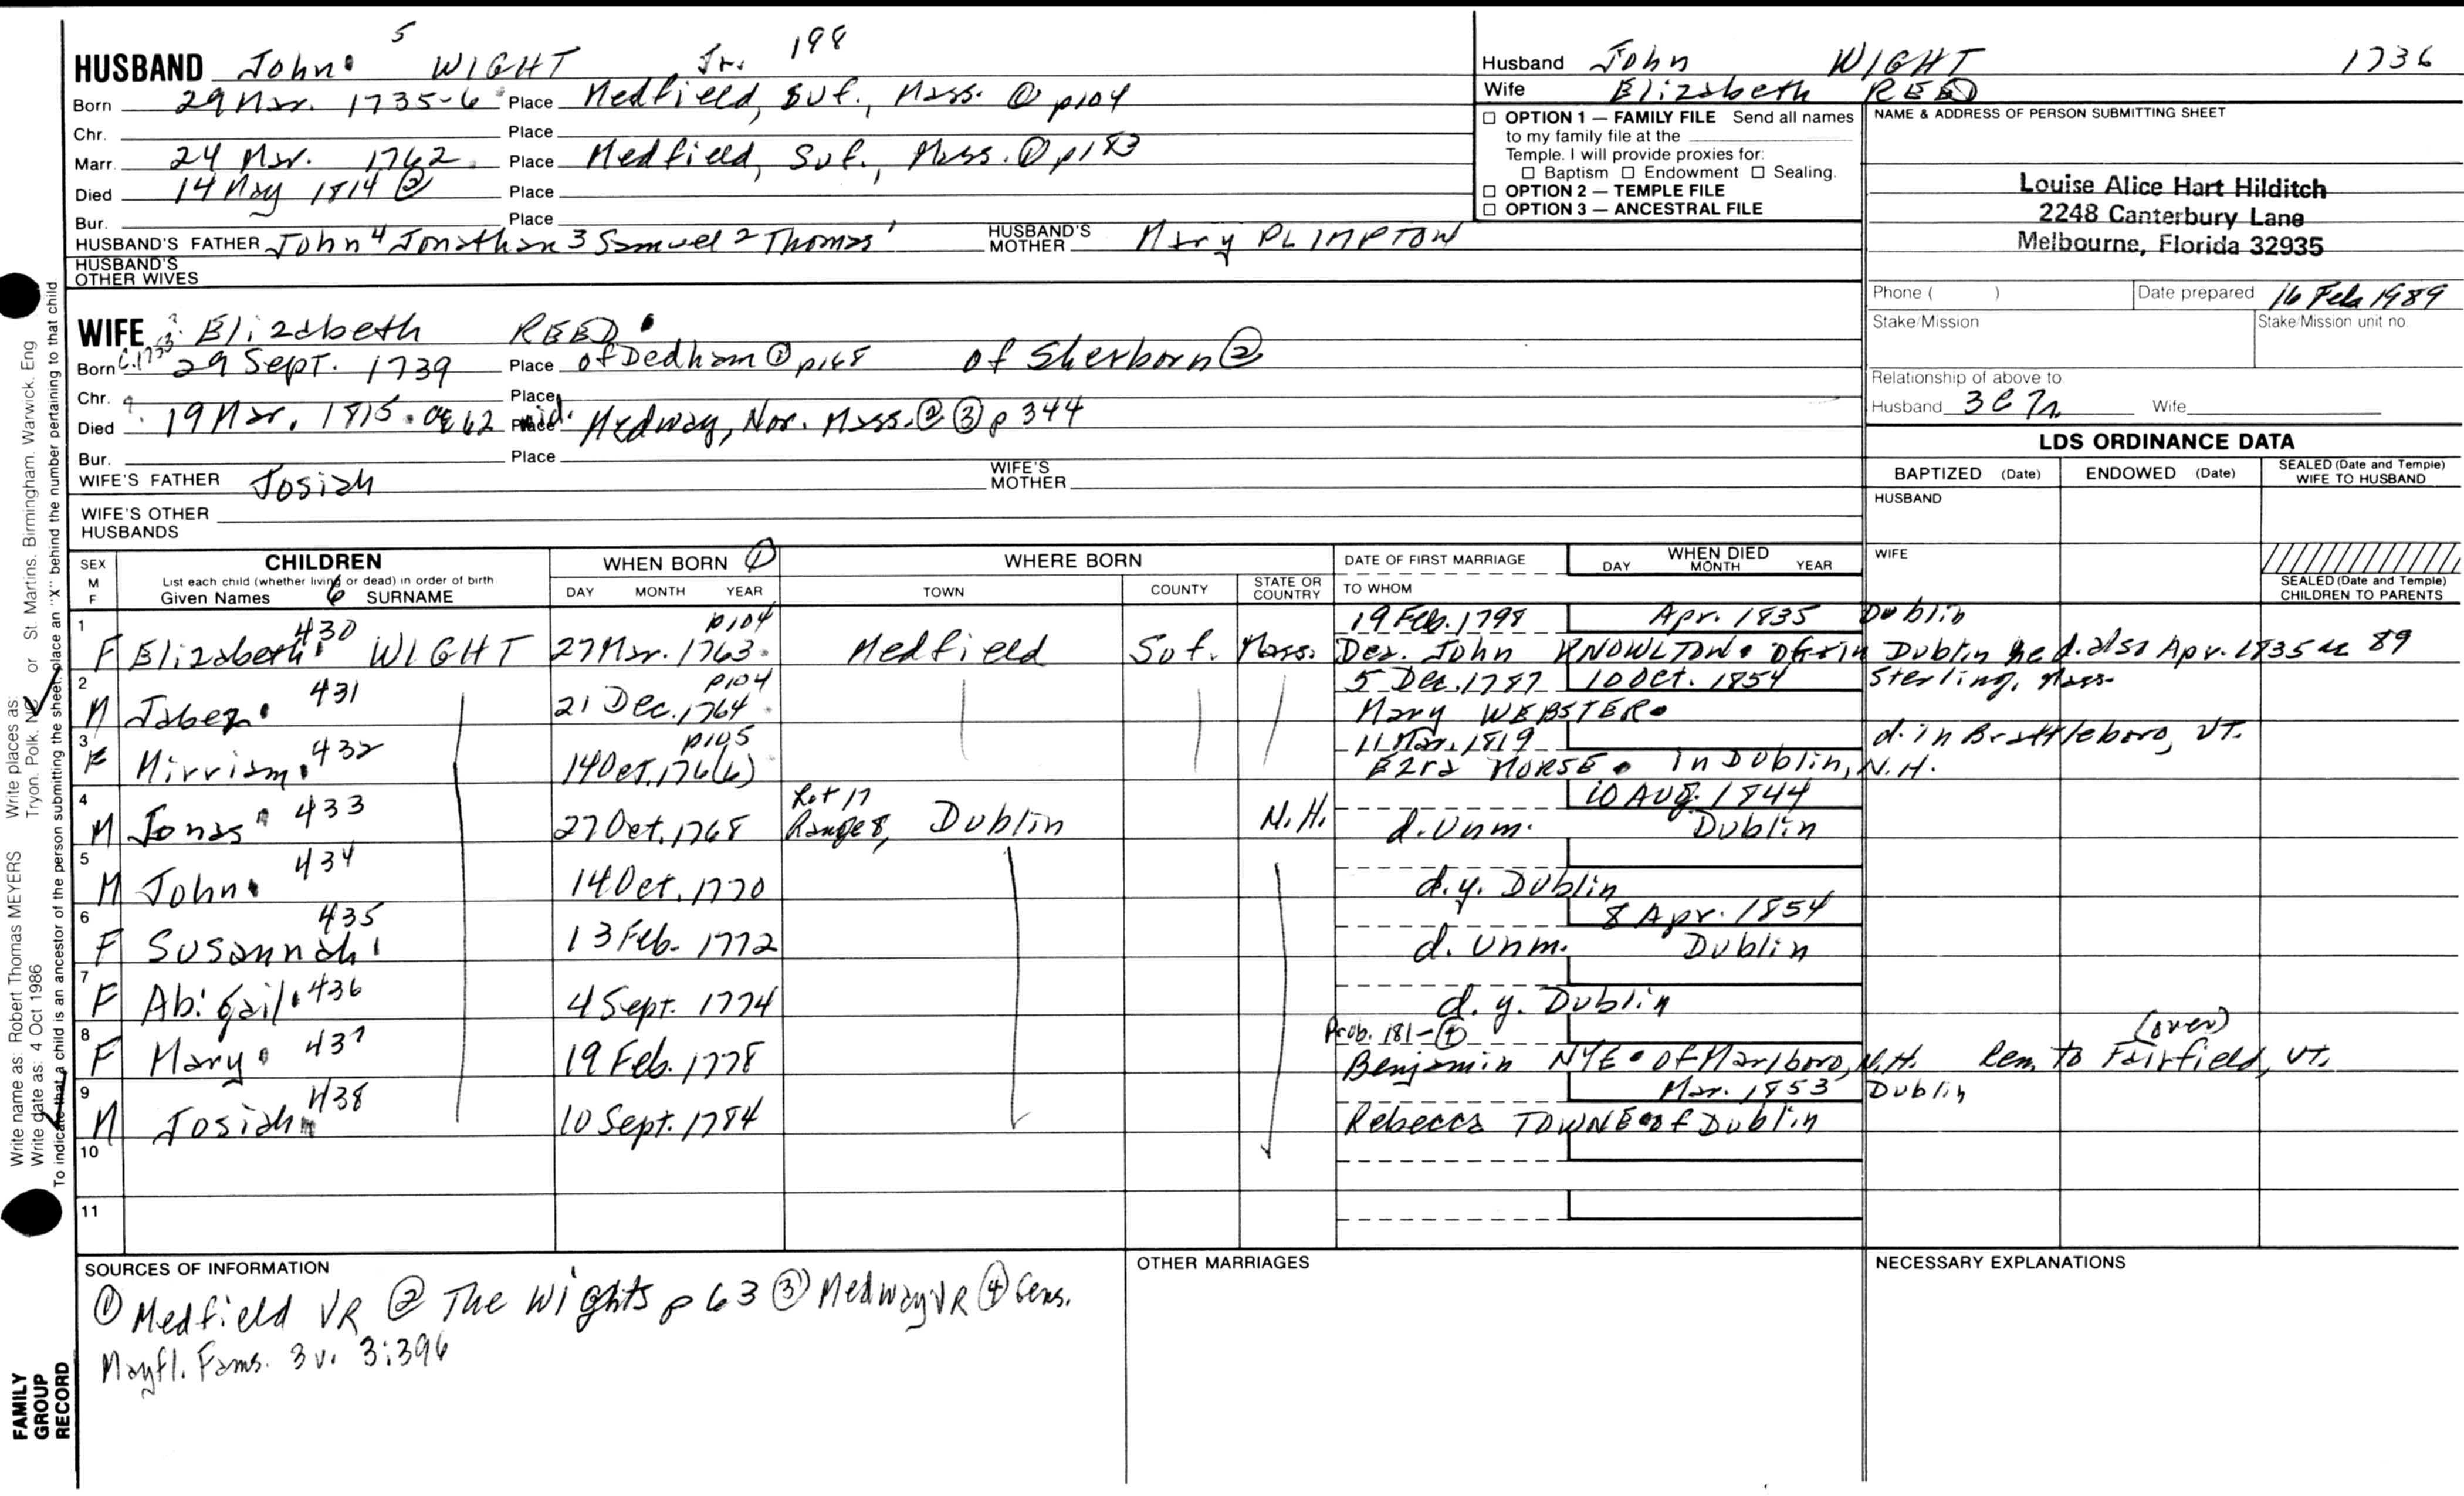 HUSBAND John 5 WIGHT Jr. 198
Born 29 Mar. 1735-6 Place Medfield, Suf., Mass. ① p104
Chr. Place
Marr. 24 Mar. 1762 Place Medfield, Suf., Mass. ① p183
Died 14 May 1814 ② Place
Bur. Place
HUSBAND'S FATHER John 4 Jonathan 3 Samuel 2 Thomas 1 HUSBAND'S MOTHER Mary PLIMPTON
HUSBAND'S OTHER WIVES
Husband John WIGHT 1736
Wife Elizabeth REED
☐ OPTION 1 — FAMILY FILE Send all names
to my family file at the
Temple. I will provide proxies for:
☐ Baptism ☐ Endowment ☐ Sealing.
☐ OPTION 2 — TEMPLE FILE
☐ OPTION 3 — ANCESTRAL FILE
NAME & ADDRESS OF PERSON SUBMITTING SHEET
Louise Alice Hart Hilditch
2248 Canterbury Lane
Melbourne, Florida 32935
Phone ( ) Date prepared 16 Feb 1989
Stake/Mission Stake/Mission unit no.
Relationship of above to
Husband 3C7r Wife
WIFE Elizabeth REED
Born c.1753? 29 Sept. 1739 Place of Dedham ① p168 of Sherborn ②
Chr. Place
Died ? 19 Mar. 1815. ae 62 wid. Place Medway, Nor. Mass. ② ③ p 344
Bur. Place
WIFE'S FATHER Josiah WIFE'S MOTHER
WIFE'S OTHER HUSBANDS
LDS ORDINANCE DATA
BAPTIZED (Date) ENDOWED (Date) SEALED (Date and Temple) WIFE TO HUSBAND
HUSBAND
WIFE
SEALED (Date and Temple) CHILDREN TO PARENTS
SEX M F CHILDREN List each child (whether living or dead) in order of birth Given Names 6 SURNAME
WHEN BORN ① DAY MONTH YEAR
WHERE BORN TOWN COUNTY STATE OR COUNTRY
DATE OF FIRST MARRIAGE TO WHOM
WHEN DIED DAY MONTH YEAR
1 430 p104 19 Feb. 1798 Apr. 1835 Dublin
F Elizabeth WIGHT 27 Mar. 1763 Medfield Suf. Mass. Dea. John KNOWLTON Dublin he d. also Apr. 1835 ae 89
2 431 p104 5 Dec. 1787 10 Oct. 1854 Sterling, Mass.
M Jabez 21 Dec. 1764 Mary WEBSTER
3 432 p105 11 Mar. 1819 d. in Brattleboro, VT.
F Mirriam 14 Oct. 176(6) Ezra MORSE in Dublin, N.H.
4 433 Lot 17 10 Aug. 1844
M Jonas 27 Oct. 1768 Range 8, Dublin N.H. d. unm. Dublin
5 434
M John 14 Oct. 1770 d.y. Dublin
6 435 8 Apr. 1854
F Susannah 13 Feb. 1772 d. unm. Dublin
7
F Abigail 436 4 Sept. 1774 d. y. Dublin
8 437 Prob. 181-④ (over)
F Mary 19 Feb. 1778 Benjamin NYE of Marlboro, N.H. Rem. to Fairfield, VT.
9 438 Mar. 1853 Dublin
M Josiah 10 Sept. 1784 Rebecca TOWNE of Dublin
10
11
SOURCES OF INFORMATION
① Medfield VR ② The Wights p 63 ③ Medway VR ④ Cens.
Mayfl. Fams. 3v. 3:396
OTHER MARRIAGES
NECESSARY EXPLANATIONS
Write name as: Robert Thomas MEYERS Write places as: Tryon. Polk. NC or St. Martins. Birmingham. Warwick. Eng
Write date as: 4 Oct 1986
To indicate that a child is an ancestor of the person submitting the sheet, place an "X" behind the number pertaining to that child
FAMILY
GROUP
RECORD